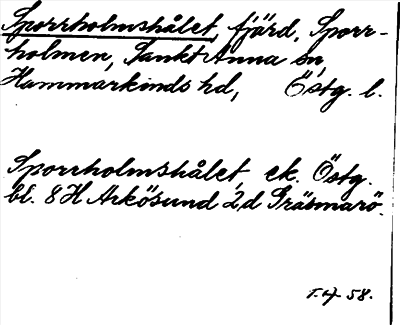 Sporrholmshålet, fjärd, Sporr-
holmen, Sankt Anna sn,
Hammarkinds hd, Östg. l.
Sporrholmshålet, ek. Östg.
bl. 8 H Arkösund 2 d Gräsmarö.
58.